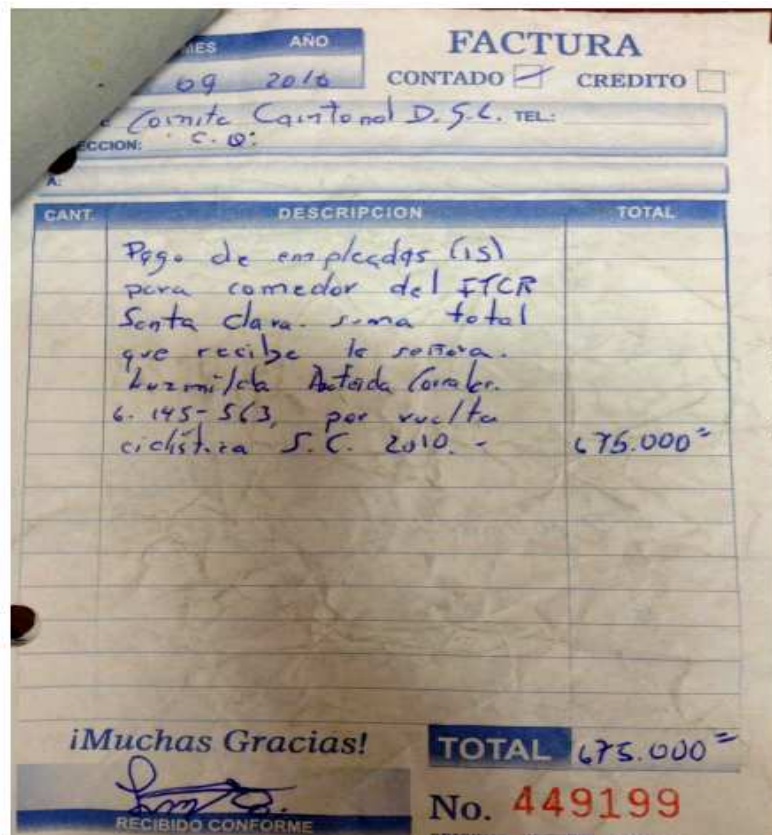 MES AÑO FACTURA
09 2010 CONTADO CREDITO
Comite Cantonal D. S.C. TEL:
ECCION: C. Q.
A:
CANT. DESCRIPCION TOTAL
Pago de empleadas (15)
para comedor del ITCR
Santa Clara. suma total
que recibe la señora.
Luzmilda
6. 145-563, por vuelta
ciclistica S.C. 2010. - 675.000=
¡Muchas Gracias! TOTAL 675.000=
RECIBIDO CONFORME No. 449199